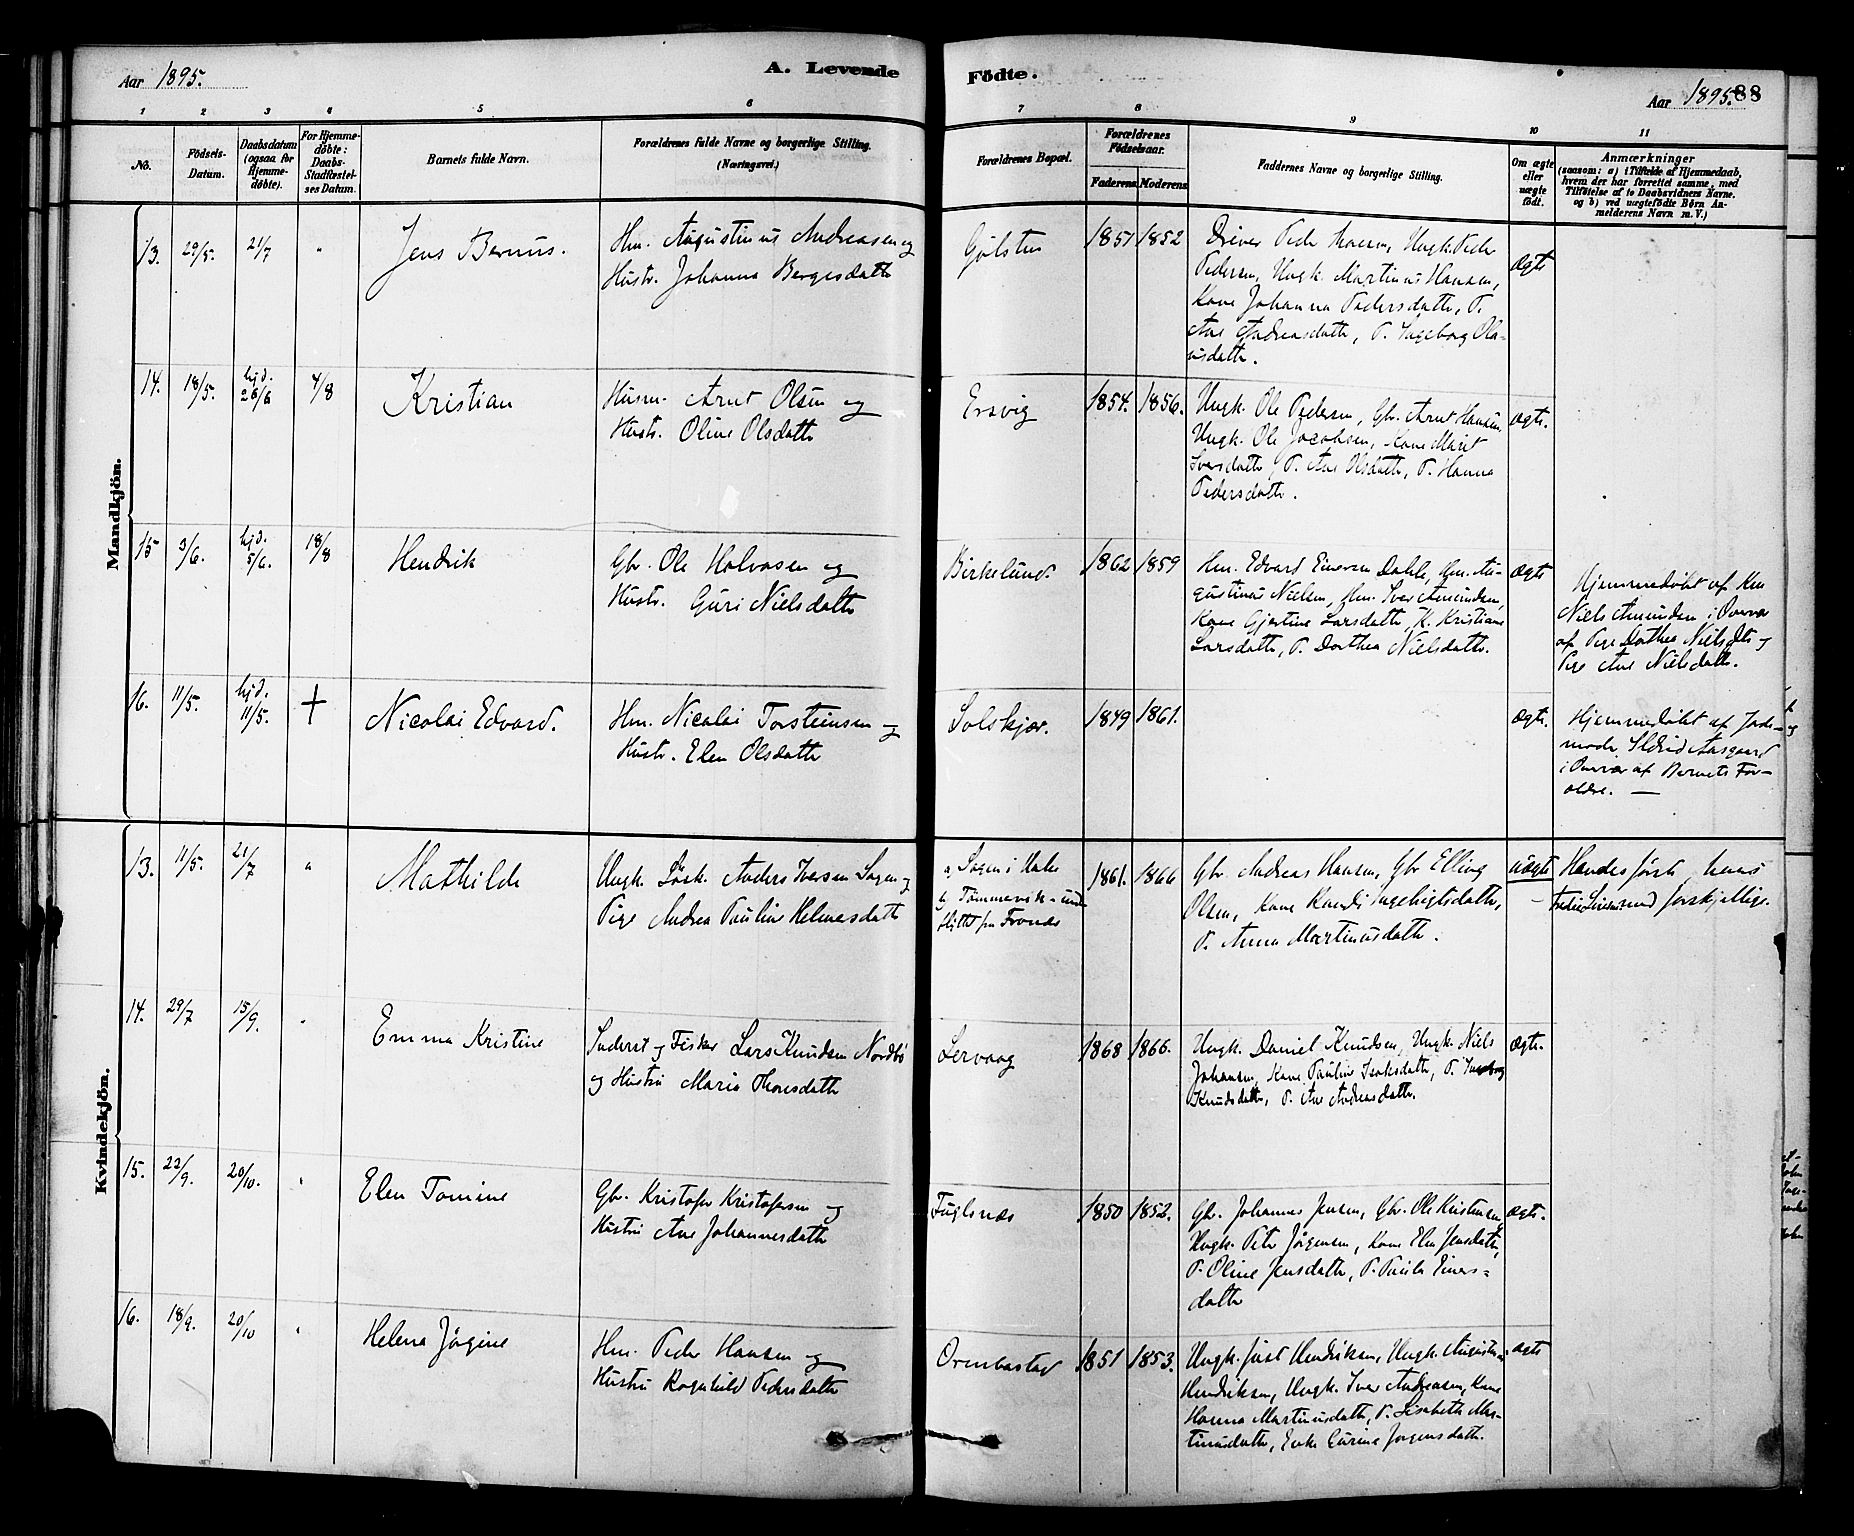 Aar 1895.
A. Levende
Födte.
Aar 1895. 88
1 2 3 4 5 6 7 8 9 10 11
No.
Födsels-
Datum.
Daabsdatum
(ogsaa for
Hjemme-
döbte).
For Hjemme-
döbte:
Daabs-
Stadfæstel-
ses Datum.
Barnets fulde Navn.
Forældrenes fulde Navne og borgerlige Stilling.
(Næringsvei.)
Forældrenes Bopæl.
Forældrenes
Födselsaar.
Faderens. Moderens.
Faddernes Navne og borgerlige Stilling.
Om ægte
eller
uægte
födt.
Anmærkninger
(saasom: a) i Tilfælde af Hjemmedaab,
hvem der har forrettet samme, med
Tilføielse af to Daabsvidners Navne.
og b) ved uægtefödte Börn An-
melderens Navn m. V.)
Mandkjön.
13. 29/5. 21/7 "
Jens Bernus.
Hm. Augustinus Andreasen og
Hustr. Johanna Bergesdatter
Gulstu
1851 1852
Peder
Pedersen, Ungk. Martinus Hansen,
Kone Johanna Pedersdatter, P.
Ane Andreasdatter, P. Ingeborg Ola-
usdatter.
Ægte
14. 18/5. hjd.
26/6 4/8
Kristian
Husm. Arnt Olsen og
Hustr. Oline Olsdatter
Ersvig
1854. 1856.
Ungk. Ole Pedersen, Gbr. Arnt Hansen,
Ungk. Ole Jacobsen, Kone Marit
Iversdatter, P. Ane Olsdatter, P. Hanna
Pedersdatter.
Ægte.
15 3/6. hjd.
5/6. 18/8
Hendrik
Gbr. Ole Halvorsen og
Hustr. Guri Nielsdatter
Birkelund.
1862 1859
Hm. Edvard Einersen Dahle, Hm. Au-
gustinus Nielsen, Hm. Iver Amundsen,
Kone Gjertine Larsdatter, K. Kristiane
Larsdatter, P. Dorthea Nielsdatter.
Ægte
Hjemmedøbt af Km
Niels Amundsen i Overvær
af Pige Dorthea Nielsdtr og
Pige Ane Nielsdatter.
16. 11/5. hjd.
11/5. +
Nicolai Edvard.
Hm. Nicolai Torsteinsen og
Hustr. Elen Olsdatter
Solskjær.
1849 1861.
Ægte.
Hjemmedøbt af Jorde-
moder Sldrid Aasgaard
i Overvær af Barnets For-
ældre. —
Kvindekjön.
13. 11/5. 21/7 "
Mathilde
Ungk. Løsk. Anders Iversen Sogn og
Pige Andrea Pauline Helmersdatter
a, Sogn i
b, Tømmervik - ind-
flyttet fra Frænde
1861. 1866
Gbr. Andreas Hansen, Gbr Elling
Olsen, Kone Randi Ingebrigtsdatter,
P. Anna Martinusdatter.
uægte
—
Hendes første, hans
med forskjellige.
14. 29/7 15/9. "
Emma Kristine
Inderst og Fisker Lars Knudsen Nordbø
og Hustru Maria Thoresdatter
Lervaag
1868 1866.
Ungk. Daniel Knudsen, Ungk. Niels
Johansen, Kone Pauline Isaksdatter, P. Ingeborg
Knudsdatter, P. Ane Andreasdatter.
Ægte.
15. 22/9. 20/10. "
Elen Tomine
Gbr. Kristofer Kristofersen og
Hustru Ane Johannesdatter
Fuglsnæs
1850 1852.
Gbr. Johannes Jensen, Gbr. Ole Kristensen,
Ungk. Peter Jørgensen, Kone Elen Jensdatter,
P. Oline Jensdatter, P. Paula Einars-
datter
Ægte.
16. 18/9. 20/10 "
Helena Jørgine
Hm. Peder Hansen og
Hustru Ragnhild Pedersdatter
Ormbastad
1851 1853.
Ungk. Just Hendriksen, Ungk. Augustinus
Hendriksen, Ungk. Iver Andreasen, Kone
Hanna Martinusdatter, P. Lisabeth Mar-
tinusdatter, Enke Gurine Jørgensdatter.
Ægte